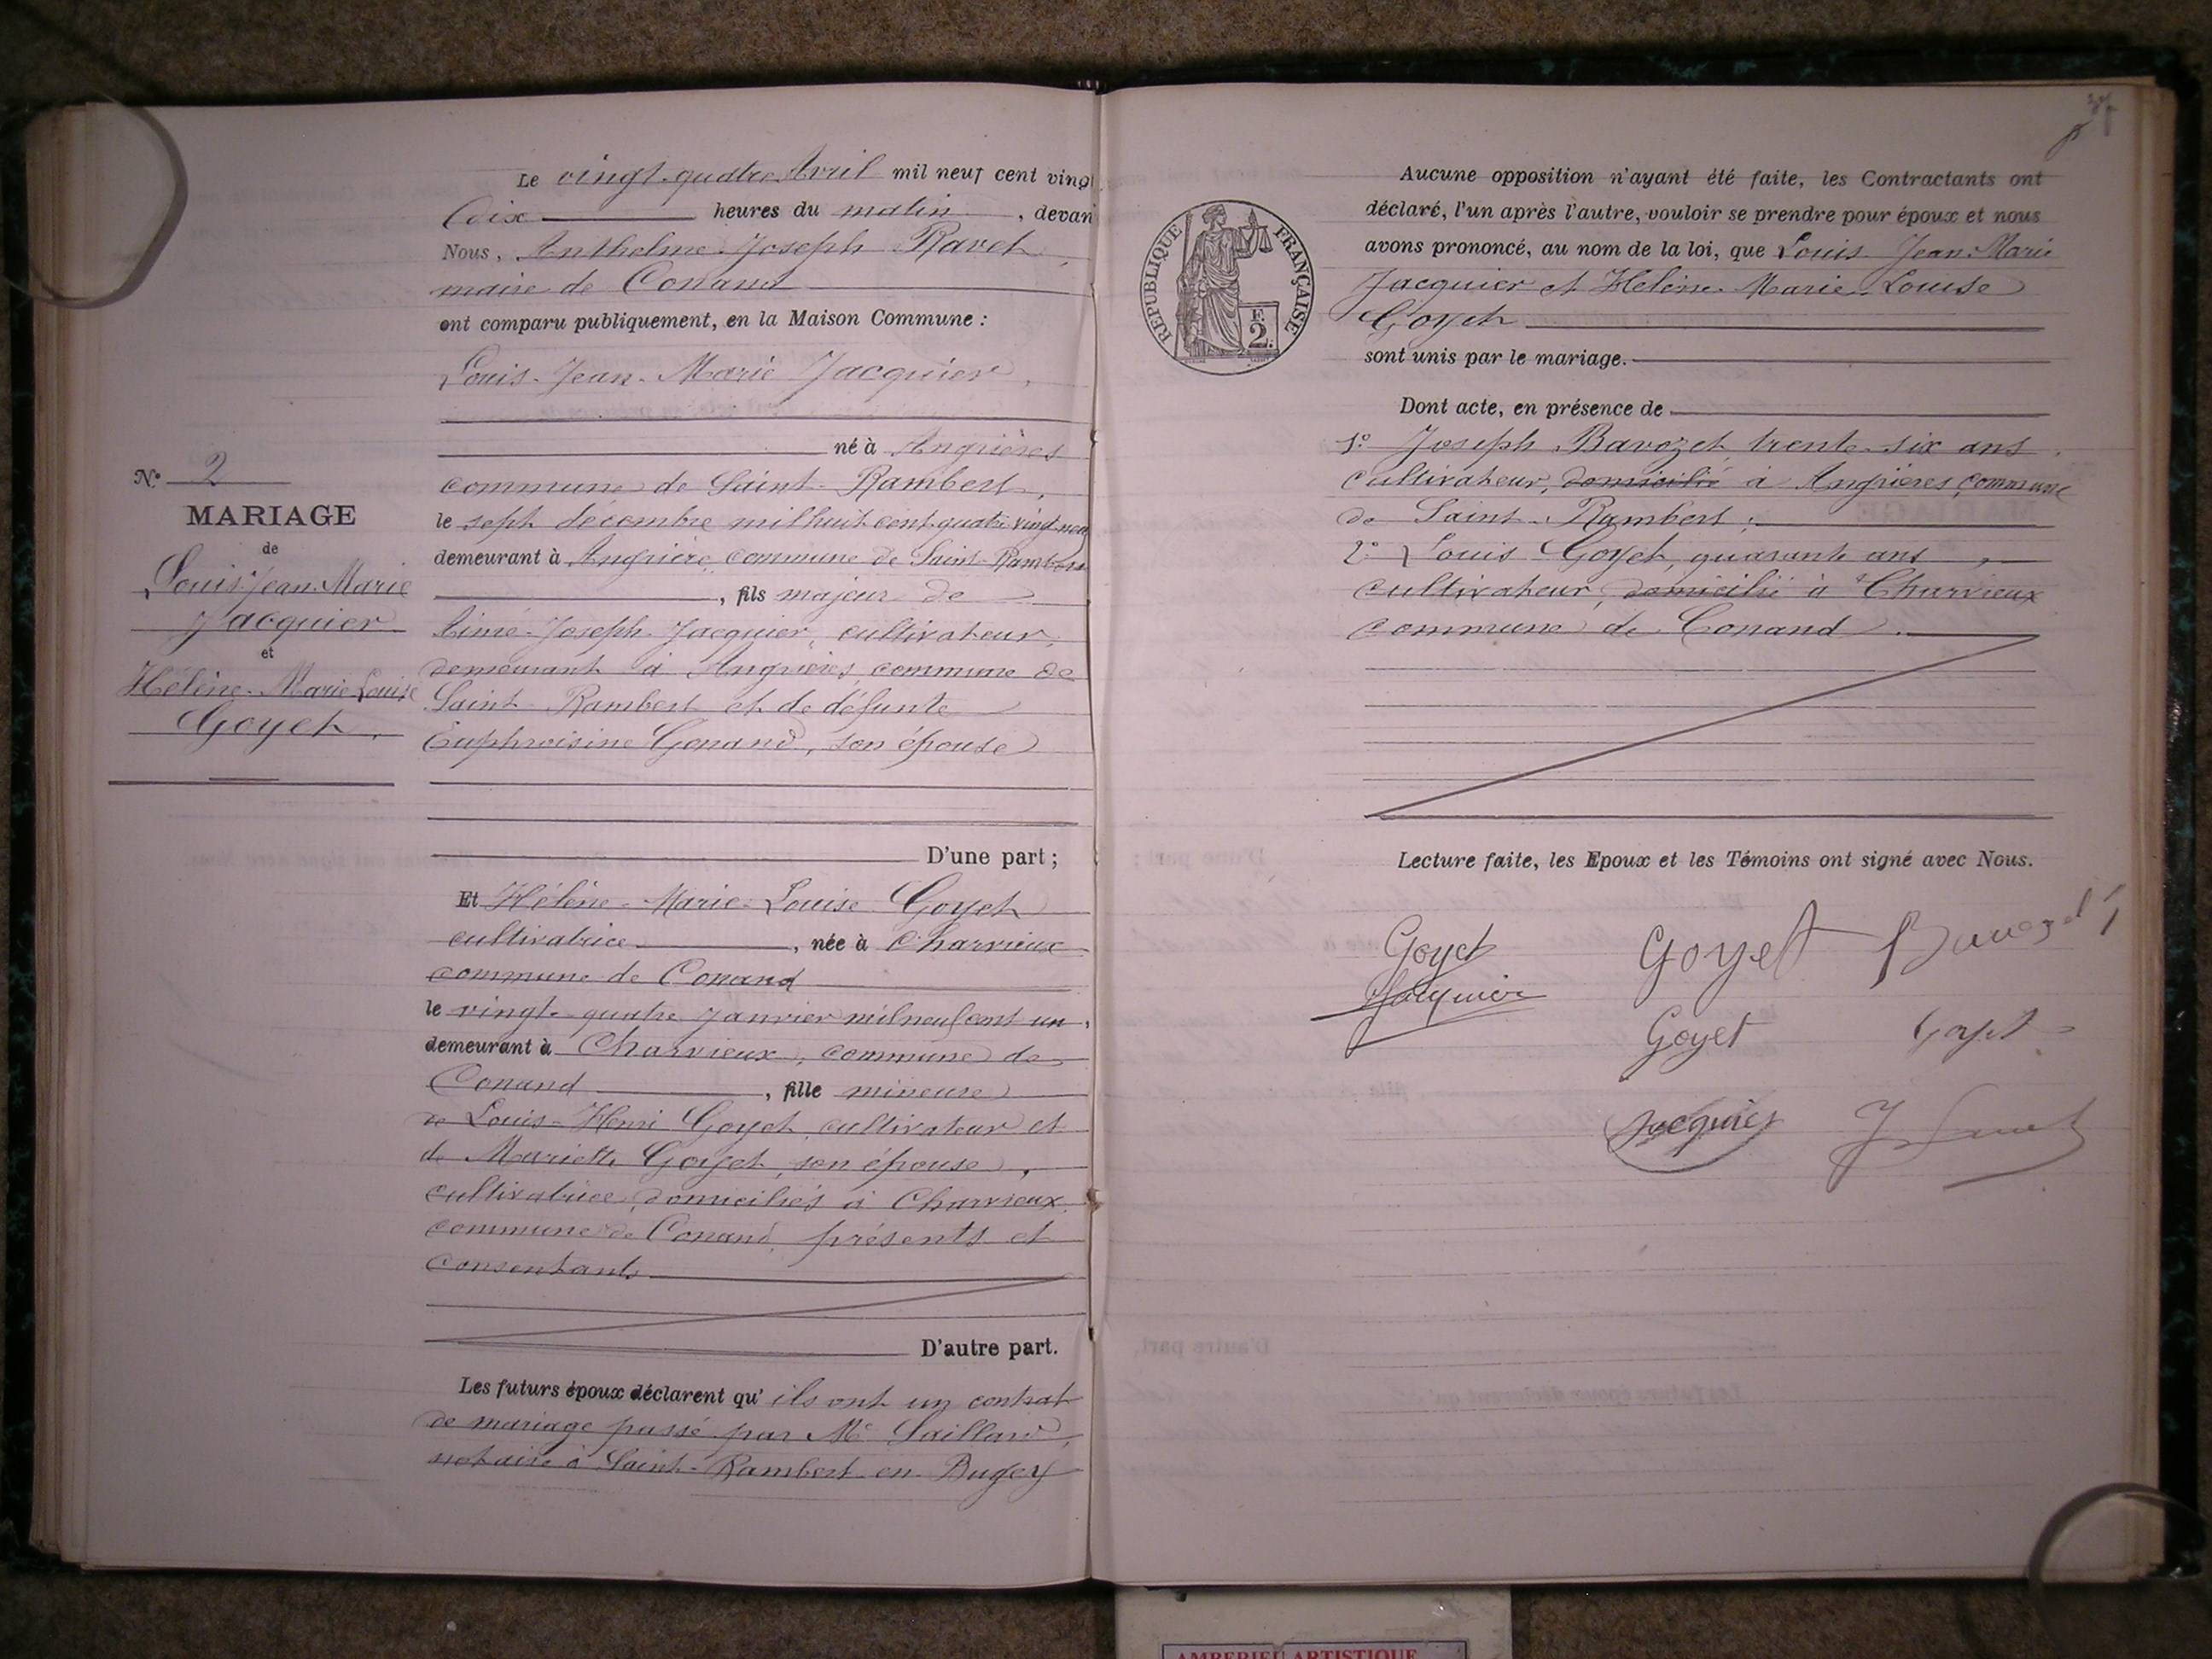 Le vingt-quatre Avril mil neuf cent vingt
dix heures du matin, devant
Nous, Anthelme Joseph Ravet,
maire de Conand
ont comparu publiquement, en la Maison Commune :
Louis-Jean-Marie Jacquier,
né à Angrières
commune de Saint-Rambert,
le sept décembre mil huit cent quatre vingt neuf
demeurant à Angrière, commune de Saint-Rambert
, fils majeur de
Aimé-Joseph Jacquier, cultivateur,
demeurant à Angrières, commune de
Saint-Rambert et de défunte
Euphroisine Genand, son épouse
D'une part ;
N° 2
MARIAGE
de
Louis Jean Marie
Jacquier
et
Hélène-Marie Louise
Goyet.
Et Hélène-Marie-Louise Goyet
cultivatrice, née à Charvieux
commune de Conand
le vingt-quatre Janvier mil neuf cent un,
demeurant à Charvieux, commune de
Conand, fille mineure
de Louis-Henri Goyet, cultivateur et
de Mariette Goyet, son épouse,
cultivatrice, domiciliés à Charvieux,
commune de Conand, présents et
consentants
D'autre part.
Les futurs époux déclarent qu'ils ont un contrat
de mariage passé par Me Saillard,
notaire à Saint-Rambert-en-Bugey
RÉPUBLIQUE FRANÇAISE
F.
2.
Aucune opposition n'ayant été faite, les Contractants ont
déclaré, l'un après l'autre, vouloir se prendre pour époux et nous
avons prononcé, au nom de la loi, que Louis Jean-Marie
Jacquier et Hélène-Marie-Louise
Goyet
sont unis par le mariage.
Dont acte, en présence de
1° Joseph Bavozet, trente-six ans,
cultivateur, domicilié à Angrières, commune
de Saint-Rambert ;
2° Louis Goyet, quarante ans,
cultivateur, domicilié à Charvieux
commune de Conand.
Lecture faite, les Epoux et les Témoins ont signé avec Nous.
Goyet Goyet
Jacquier
Goyet Goyet
Jacquier
AMBERIEU ARTISTIQUE